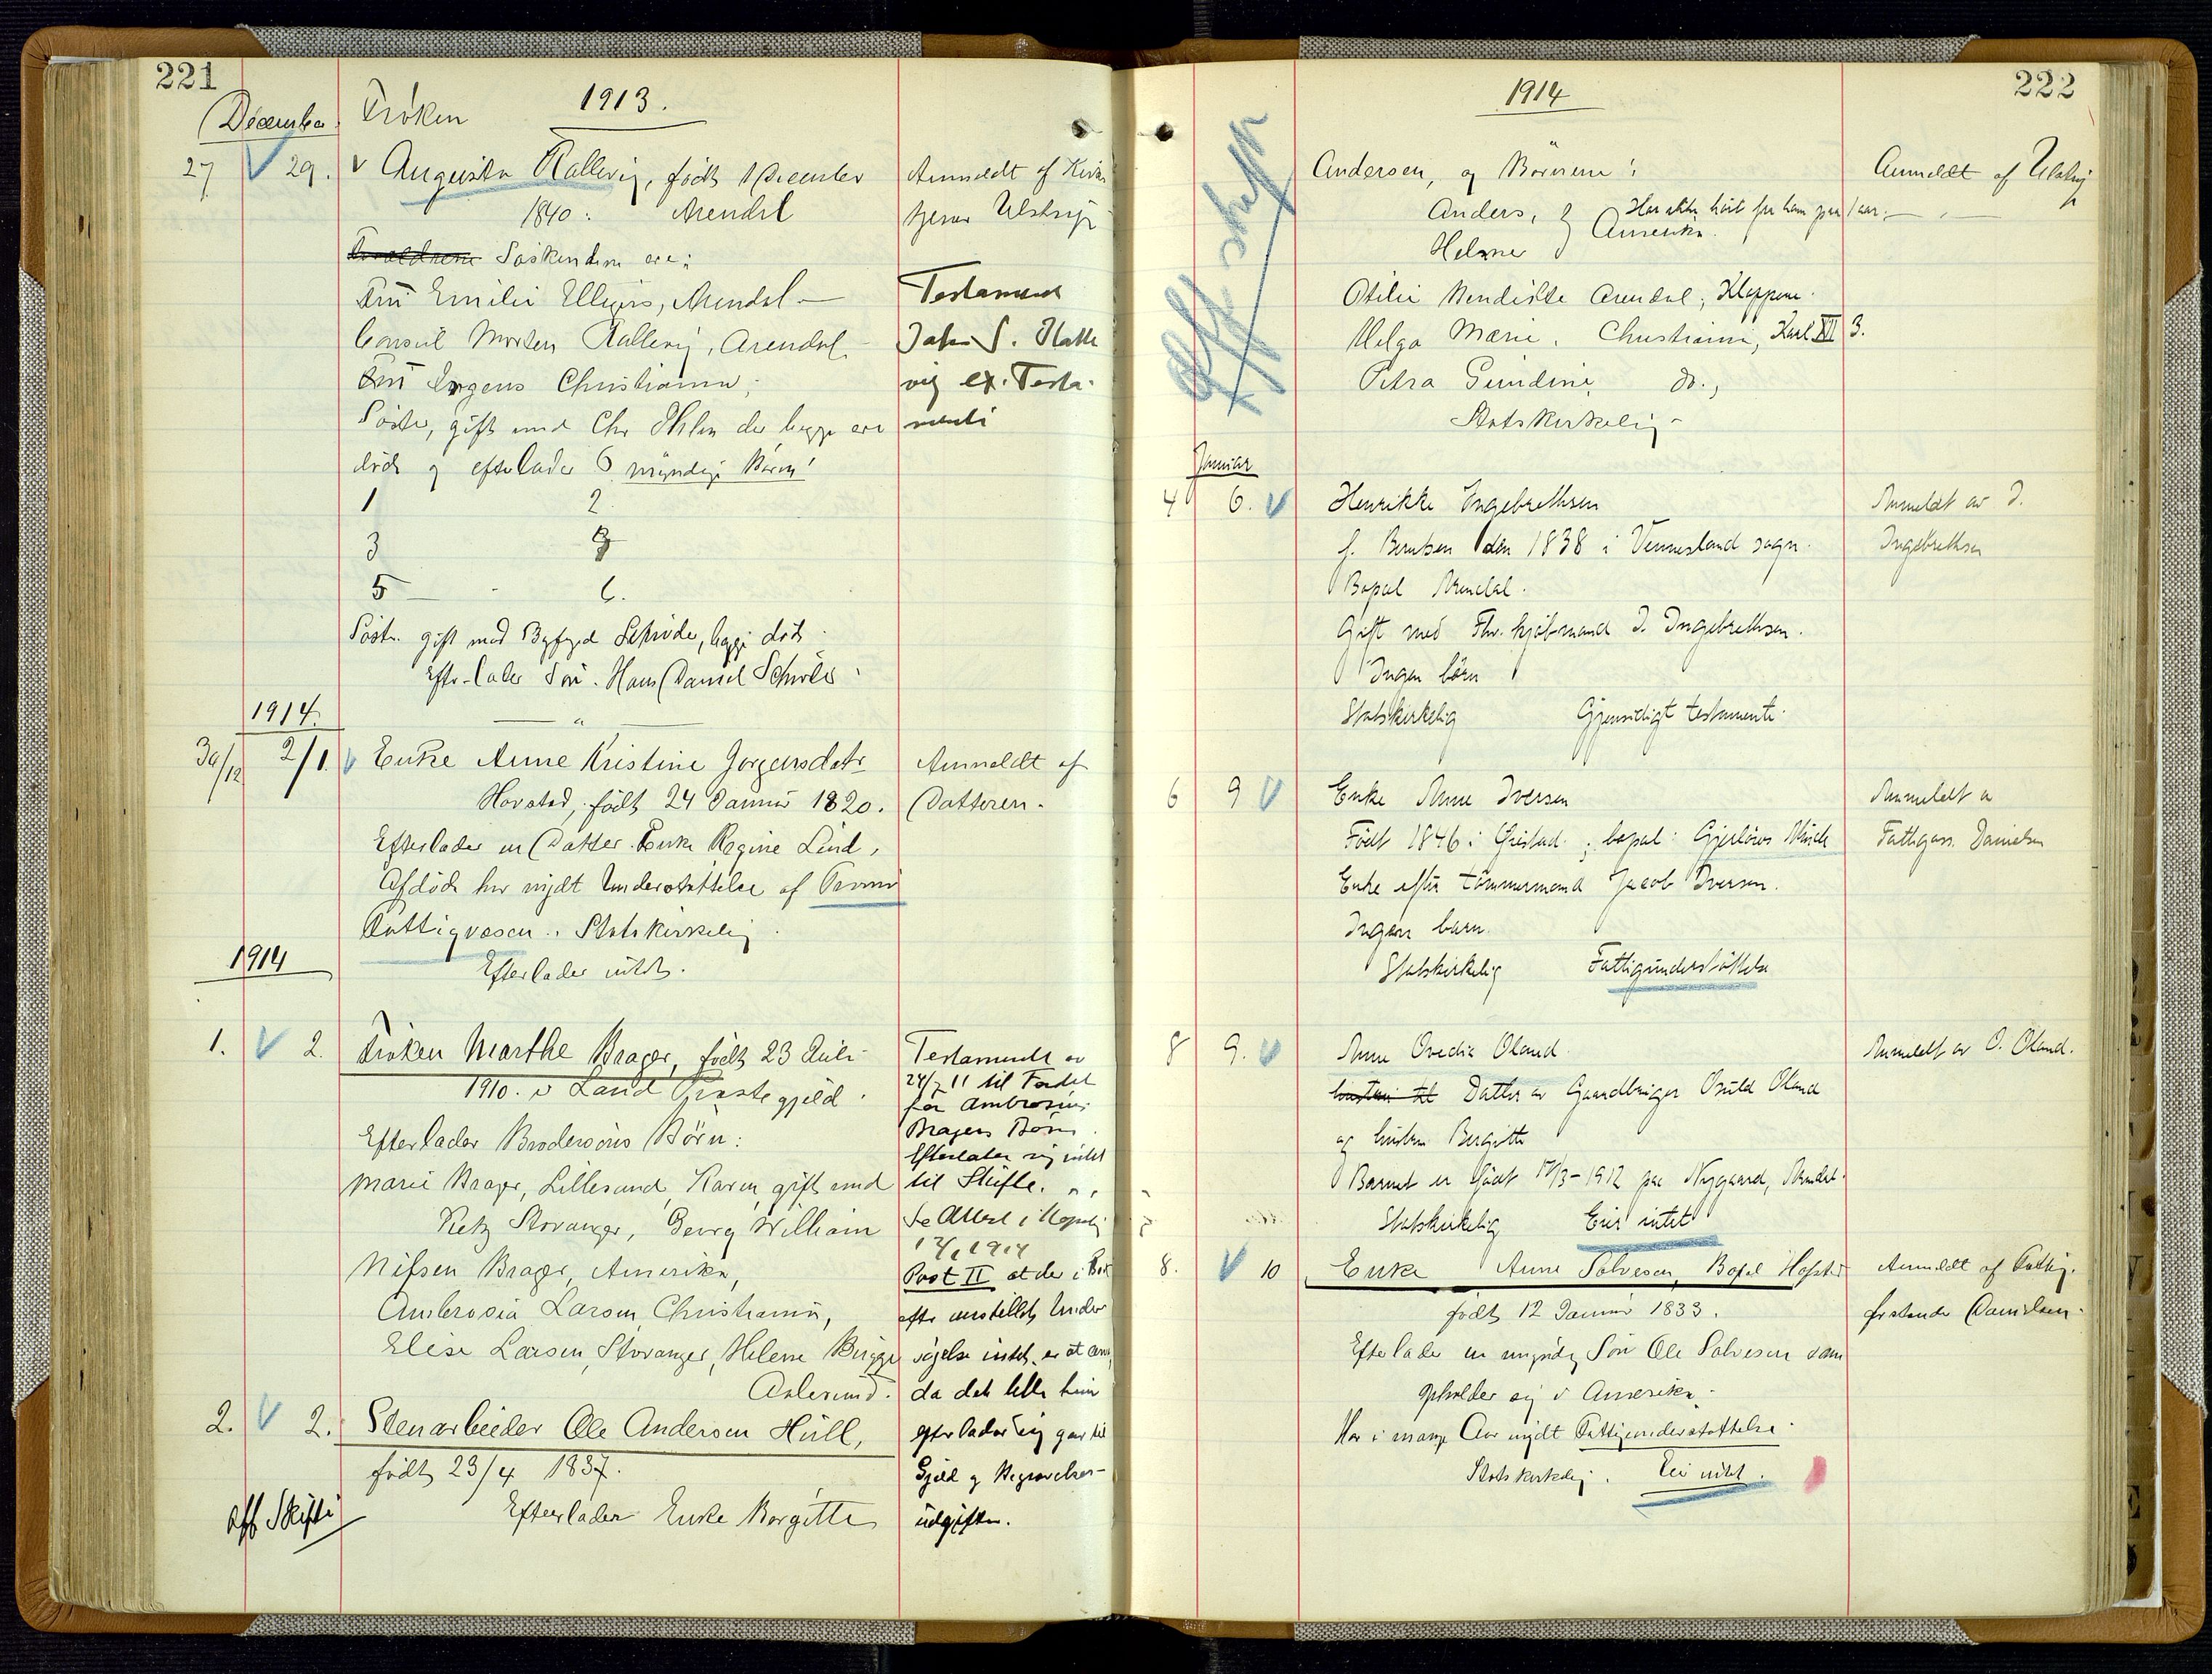 221
1913.
December.
Frøken
27 29. Augusta Kallevig, født 1 December
1840. Arendal
Anmeldt af Kirke
tjener Ulstrup
Forældrene Søskendene ere:
Fru Emilie Ellegers, Arendal
Testament
Consul Morten Kallevig, Arendal
John S. Kalle
Fru Christiania,
vig ex. Testa-
Søster, gift med Chr der begge ere
menti
døde og efterlader 6 myndige Børn!
1 2
3
5 6.
Søster gift med Byfoged Schrøder, begge døde
Efterlader Søn. Hans Daniel Schrøder
1914.
30/12 2/1. Enke Anne Kristine Jørgensdatr
Anmeldt af
Hovstad, født 24 Januar 1820.
Datteren.
Efterlader en Datter Enke Regine Lind,
Afdøde har nydt Understøttelse af Tromø
Fattigvæsen. Statskirkelig
1914
Efterlader intet.
1. 2. Frøken Marthe Brager, født 23 Juli
1910. i Land Præstegjeld.
Testamente av
24/7 11 til Fordel
for Ambrosius
Bragers Børn.
Efterlader Brodersøns Børn:
Efterlater sig intet
Marie Brager, Lillesand, Karen, gift med
til Skifte.
Stavanger, Georg William
Se Attest i
1914
Nilsen Brager, Amerika,
Post II at der i
Ambrosia Larsen Christiania,
efter anstillet Under
Elise Larsen, Stavanger, Helene
søgelse intet er at
Aalesund.
da det lille hun
2. 2. Stenarbeider Ole Andersen Hüll,
efterlader sig gaar til
født 23/4 1837.
Gjeld og Begravelses-
Aff Skifte
Efterlader Enke Borgitte
udgifter.
222
1914
Aff. skifte
Andersen, og Børnene:
Anmeldt af Ulstrup
Anders, Har ikke hørt fra ham paa 1 aar.
Amerika.
Helmer
Otilie Bendikte Arendal, Kloppene.
Helga Marie, Christiania, Karl XII 3.
Petra Gundine, do.,
Statskirkelig
Januar
4 6. Henrikke Engebrethsen
Anmeldt av J.
f. Berntsen den 1838 i Vennesland sogn.
Ingebrethsen
Bopæl Arendal.
Gift med Fhv. kjøbmand J. Ingebrethsen.
Ingen børn
Statskirkelig Gjensidigt testamente
6 9 Enke Anne Iversen
Anmeldt av
Født 1846 i ; bopæl: Gjerløws Minde
Fattigass. Danielsen
Enke efter tømmermand Jacob Iversen.
Ingen barn.
Statskirkelig Fattigunderstøttelse
8 9. Anne Ovedia Oland.
Anmeldt av O. Oland.
hustru til Datter av Gaardbruger Osuld Oland
og hustru Bergitte
Barnet er født /3-1912 paa Nygaard, Arendal.
Statskirkelig Eier intet
8. 10 Enke Anne Salvesen, Bopæl Hofstad
Anmeldt af Fattig-
født 12 Januar 1833.
forstander Danielsen
Efterlader en myndig Søn Ole Salvesen som
opholder sig i Amerika.
Har i mange Aar nydt Fattigunderstøttelse
Statskirkelig. Eier intet.